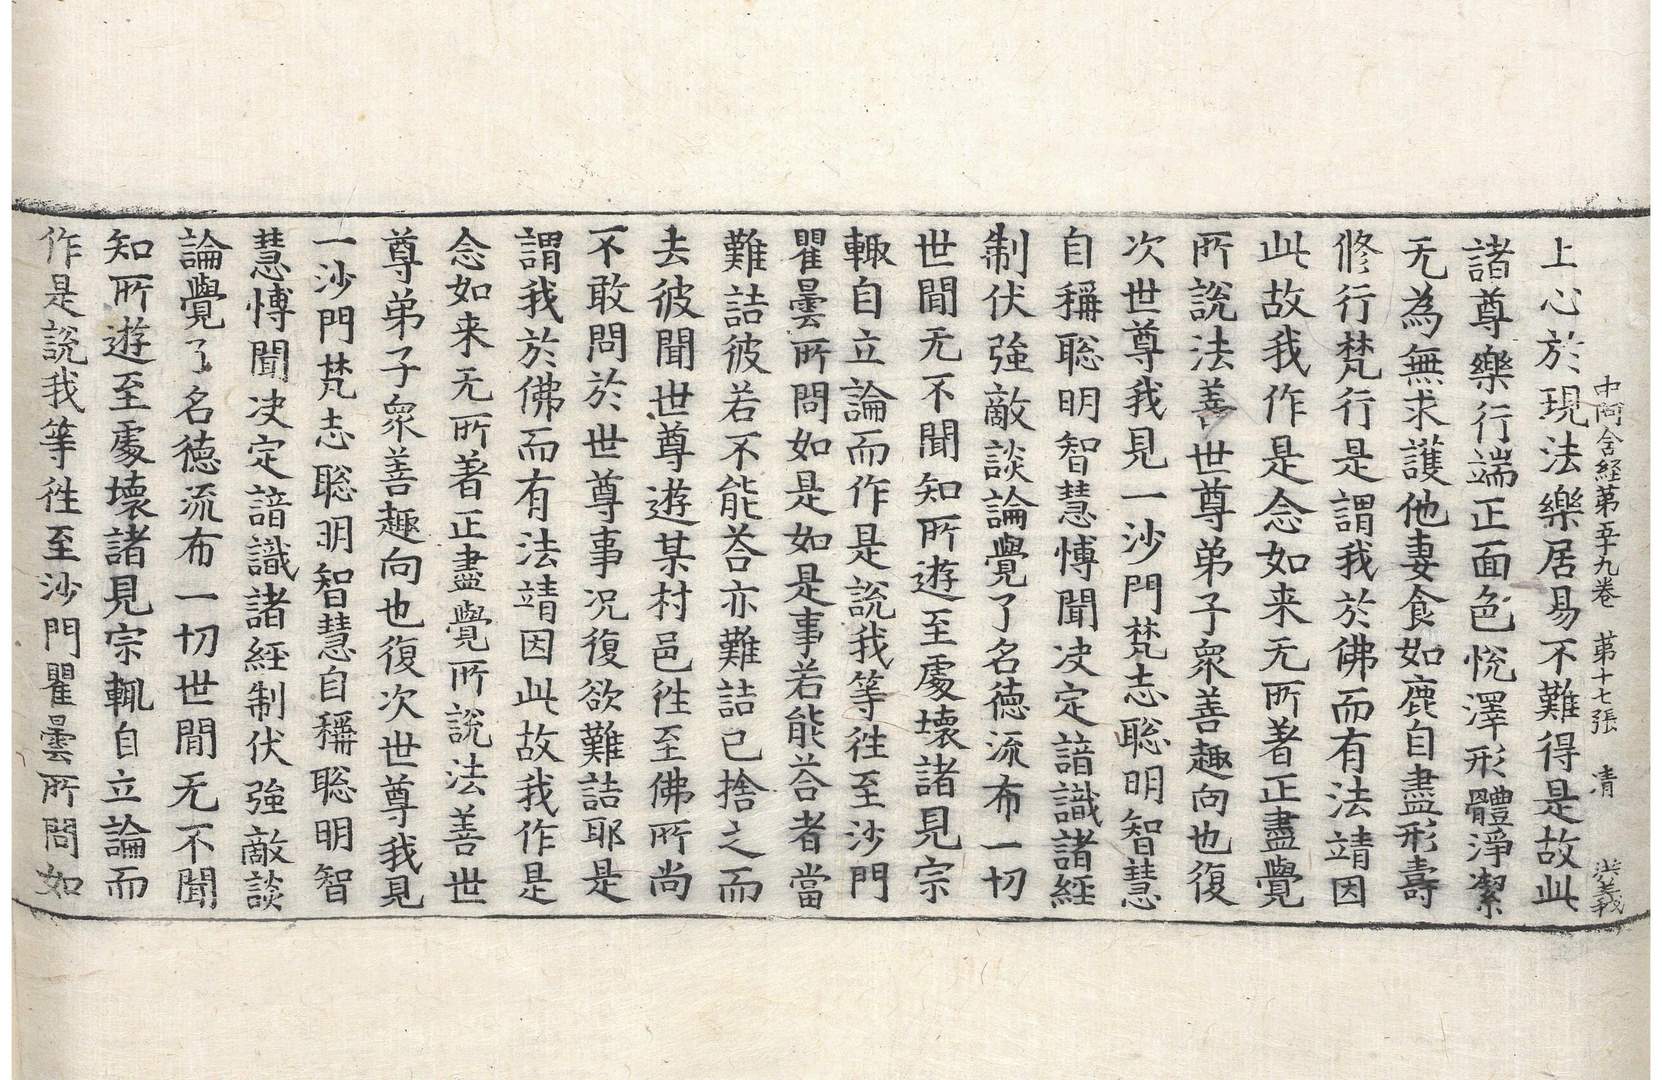 中阿含経第五十九卷 第十七張 凊 洪義
上心於現法樂居易不難得是故此
諸尊樂行端正面色悅澤形體淨潔
无為無求護他妻食如鹿自盡形壽
修行梵行是謂我於佛而有法靖因
此故我作是念如来无所著正盡覺
所說法善世尊弟子衆善趣向也復
次世尊我見一沙門梵志聡明智慧
自稱聡明智慧博聞决定諳識諸經
制伏強敵談論覺了名徳流布一切
世間无不聞知所遊至處壞諸見宗
輙自立論而作是說我等徃至沙門
瞿曇所問如是如是事若能荅者當
難詰彼若不能荅亦難詰已捨之而
去彼聞世尊遊某村邑徃至佛所尚
不敢問於世尊事况復欲難詰耶是
謂我於佛而有法靖因此故我作是
念如来无所著正盡覺所說法善世
尊弟子衆善趣向也復次世尊我見
一沙門梵志聡明智慧自稱聡明智
慧博聞决定諳識諸經制伏強敵談
論覺了名徳流布一切世間无不聞
知所遊至處壞諸見宗輙自立論而
作是說我等徃至沙門瞿曇所問如